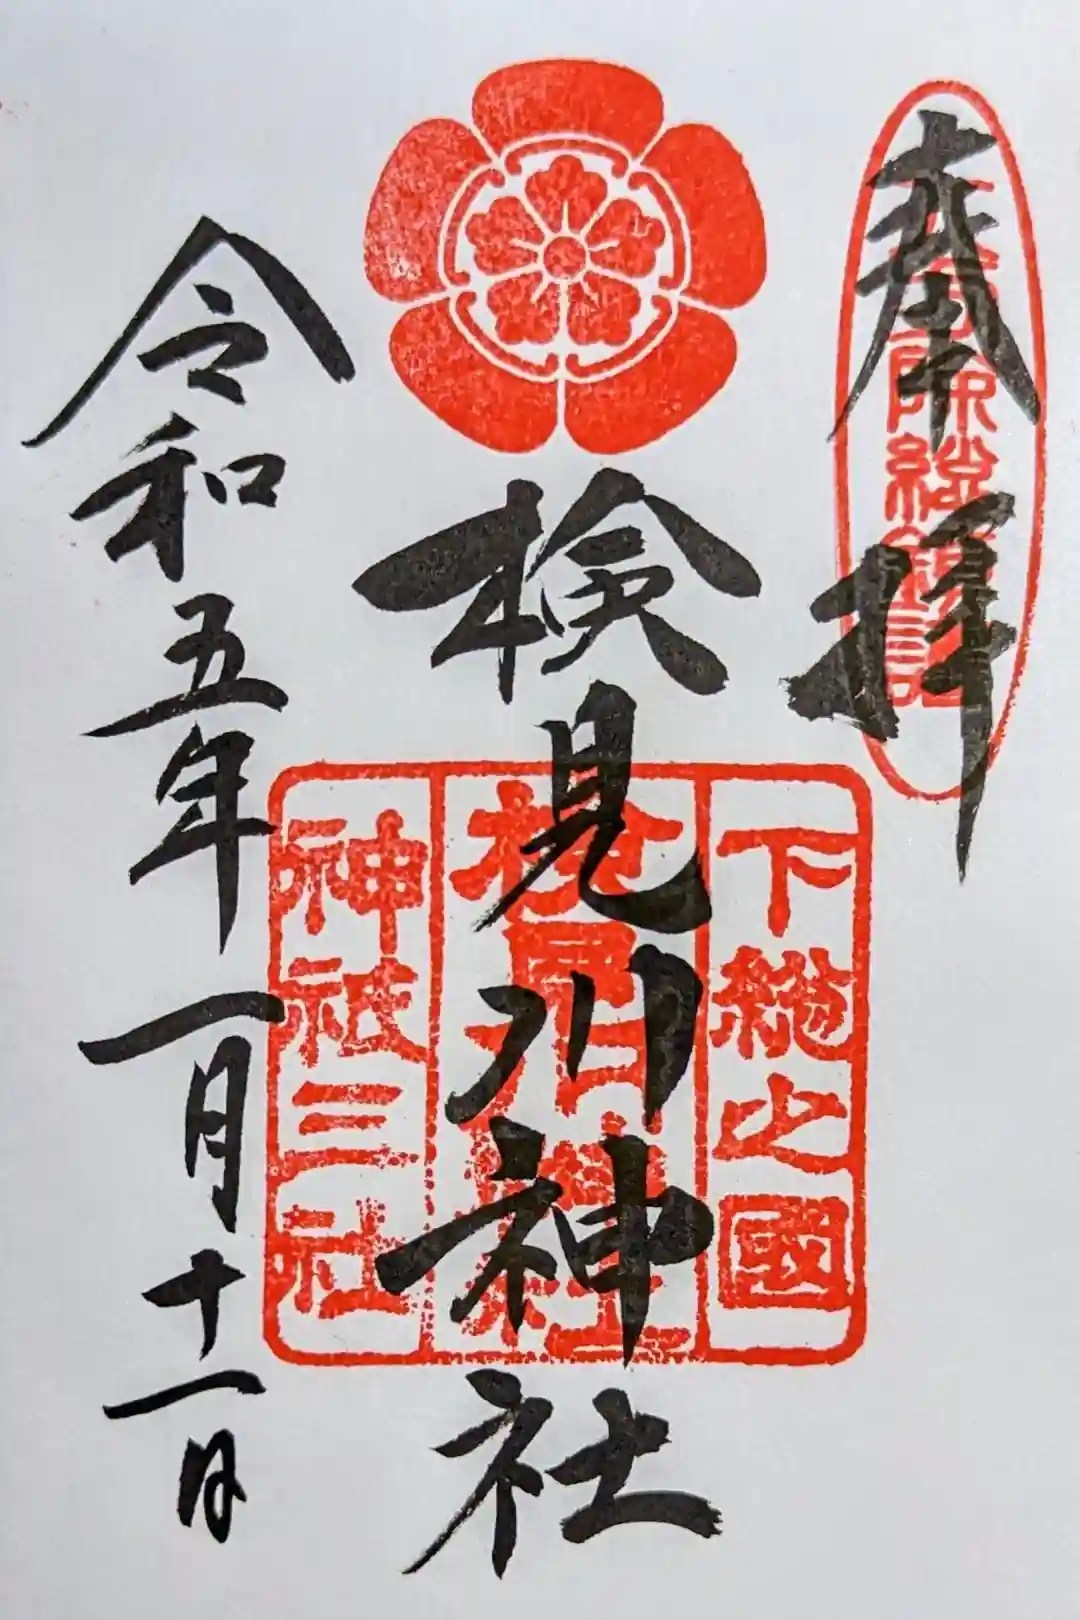 奉拝
八方除総鎮護
検見川神社
下總之國
検見川神社
神祇三社
令和五年一月十一日